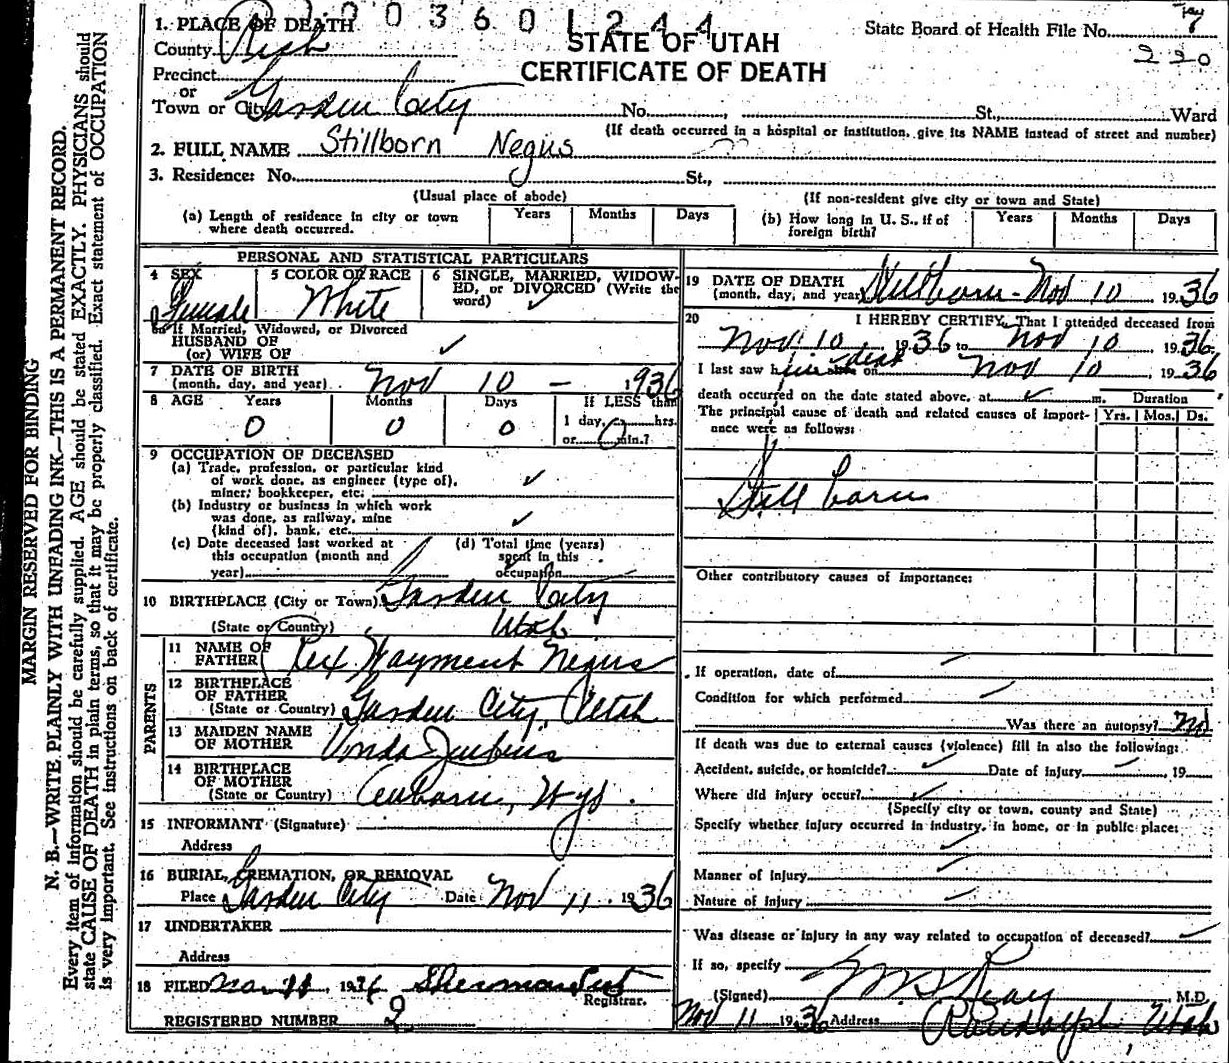 1. PLACE OF DEATH
003601244
State Board of Health File No. 7
220
County Rich
STATE OF UTAH
Precinct
CERTIFICATE OF DEATH
or
Town or City Garden City No. , St., Ward
(If death occurred in a hospital or institution, give its NAME instead of street and number)
2. FULL NAME Stillborn Negus
3. Residence: No. St.,
(Usual place of abode) (If non-resident give city or town and State)
(a) Length of residence in city or town where death occurred. Years Months Days
(b) How long in U. S., if of foreign birth? Years Months Days
PERSONAL AND STATISTICAL PARTICULARS
4 SEX Female
5 COLOR OR RACE White
6 SINGLE, MARRIED, WIDOW-
ED, or DIVORCED (Write the
word) ✓
If Married, Widowed, or Divorced
HUSBAND OF
(or) WIFE OF ✓
7 DATE OF BIRTH
(month, day, and year) Nov 10 – 1936
8 AGE Years Months Days If LESS than
0 0 0 1 day, hrs.
or 0 min.?
9 OCCUPATION OF DECEASED
(a) Trade, profession, or particular kind
of work done, as engineer (type of),
miner, bookkeeper, etc. ✓
(b) Industry or business in which work
was done, as railway, mine
(kind of), bank, etc. ✓
(c) Date deceased last worked at
this occupation (month and
year)
(d) Total time (years)
spent in this
occupation
10 BIRTHPLACE (City or Town) Garden City
(State or Country) Utah
PARENTS
11 NAME OF
FATHER Rex Wayment Negus
12 BIRTHPLACE
OF FATHER
(State or Country) Garden City, Utah
13 MAIDEN NAME
OF MOTHER Vonda Jenkins
14 BIRTHPLACE
OF MOTHER
(State or Country) Auburn, Wyo.
15 INFORMANT (Signature)
Address
16 BURIAL, CREMATION, OR REMOVAL
Place Garden City Date Nov 11, 1936
17 UNDERTAKER
Address
18 FILED 11, 1936 Sherman
Registrar.
REGISTERED NUMBER 2
19 DATE OF DEATH
(month, day, and year) Stillborn - Nov 10, 1936
20 I HEREBY CERTIFY, That I attended deceased from
Nov. 10, 1936 to Nov 10, 1936
I last saw h on Nov 10, 1936
death occurred on the date stated above, at ✓ m. Duration
The principal cause of death and related causes of import-
ance were as follows: Yrs. Mos. Ds.
Still born
Other contributory causes of importance:
If operation, date of
Condition for which performed
Was there an autopsy? No
If death was due to external causes (violence) fill in also the following:
Accident, suicide, or homicide? ✓ Date of injury , 19
Where did injury occur? ✓
(Specify city or town, county and State)
Specify whether injury occurred in industry, in home, or in public place:
Manner of injury
Nature of injury
Was disease or injury in any way related to occupation of deceased?
If so, specify
(Signed) M.D.
Nov 11 1936 Address Randolph, Utah
MARGIN RESERVED FOR BINDING
N. B.—WRITE PLAINLY WITH UNFADING INK—THIS IS A PERMANENT RECORD.
Every item of information should be carefully supplied. AGE should be stated EXACTLY. PHYSICIANS should
state CAUSE OF DEATH in plain terms, so that it may be properly classified. Exact statement of OCCUPATION
is very important. See instructions on back of certificate.